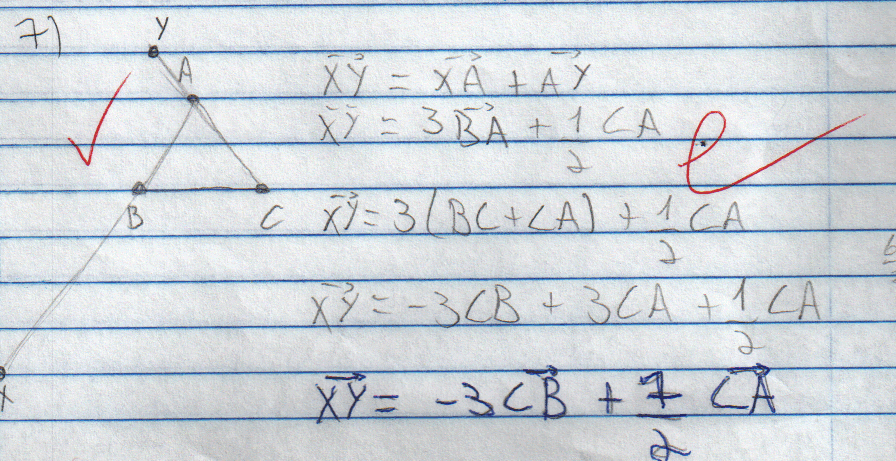 7)
Y
A
B
C
X
XY = XA + AY
XY = 3BA + 1/2 CA
XY = 3(BC + CA) + 1/2 CA
XY = -3CB + 3CA + 1/2 CA
XY = -3CB + 7/2 CA